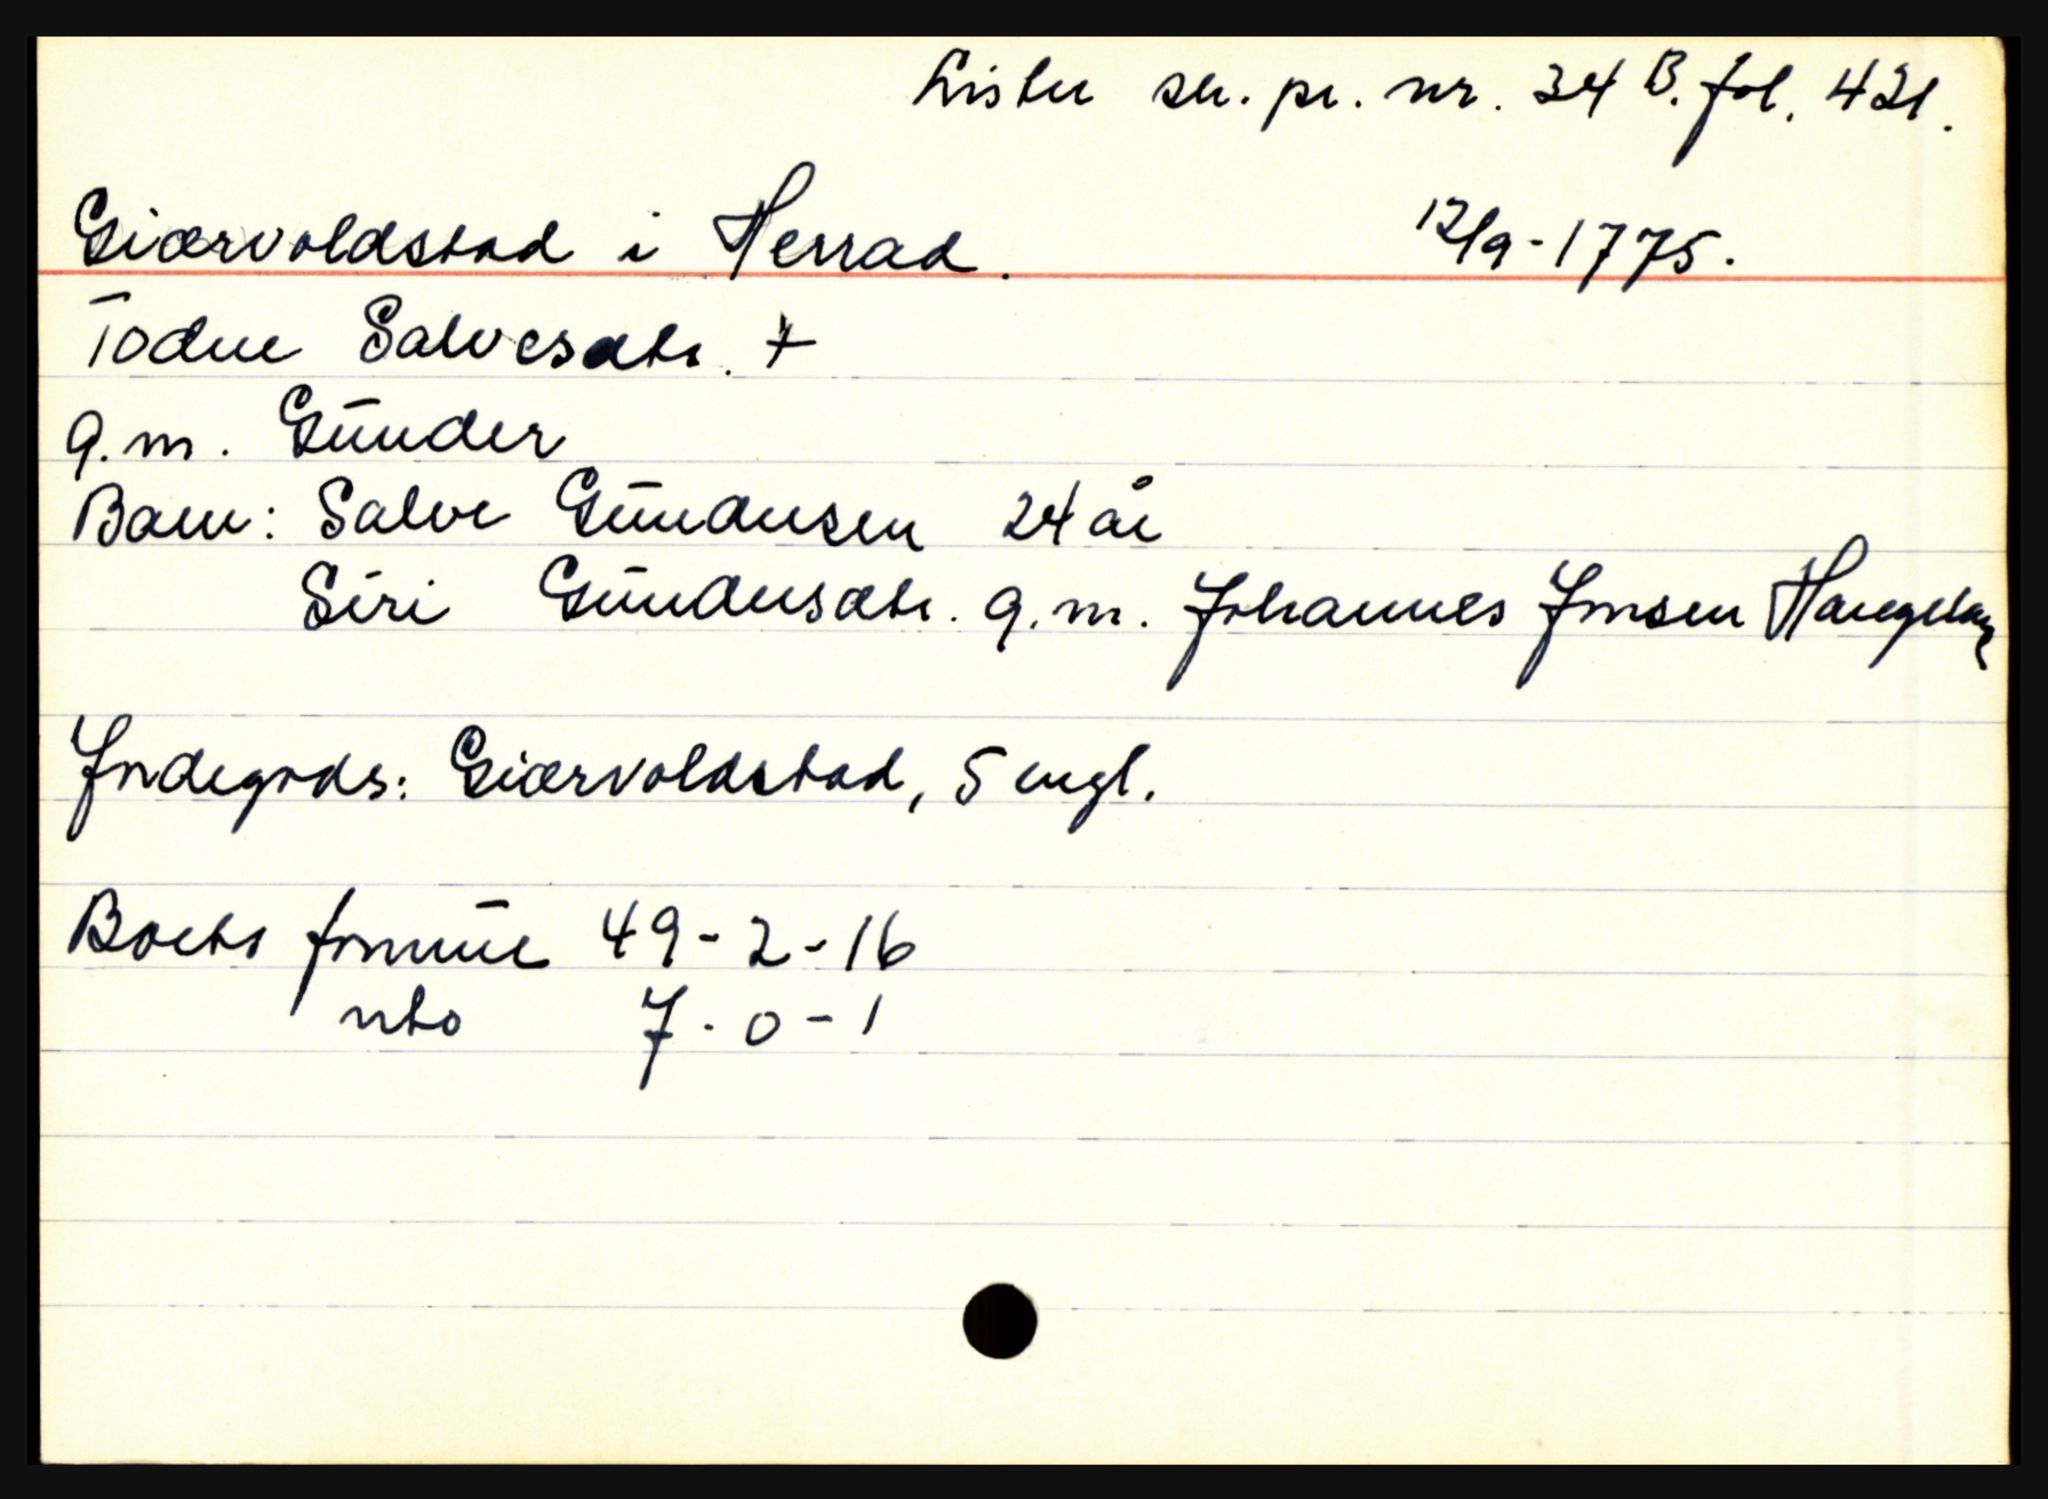 Lister sk. pr. nr. 34 B. fol. 421.
Giærvoldstad i Herrad. 12/9-1775.
Todne Salvesdtr. +
g.m. Gunder
Barn: Salve Gundersen 24 år
Siri Gundersdtr. g.m. Johannes Jonsen
Jordegods: Giærvoldstad, 5 engl.
Boets formue 49-2-16
nto 7-0-1